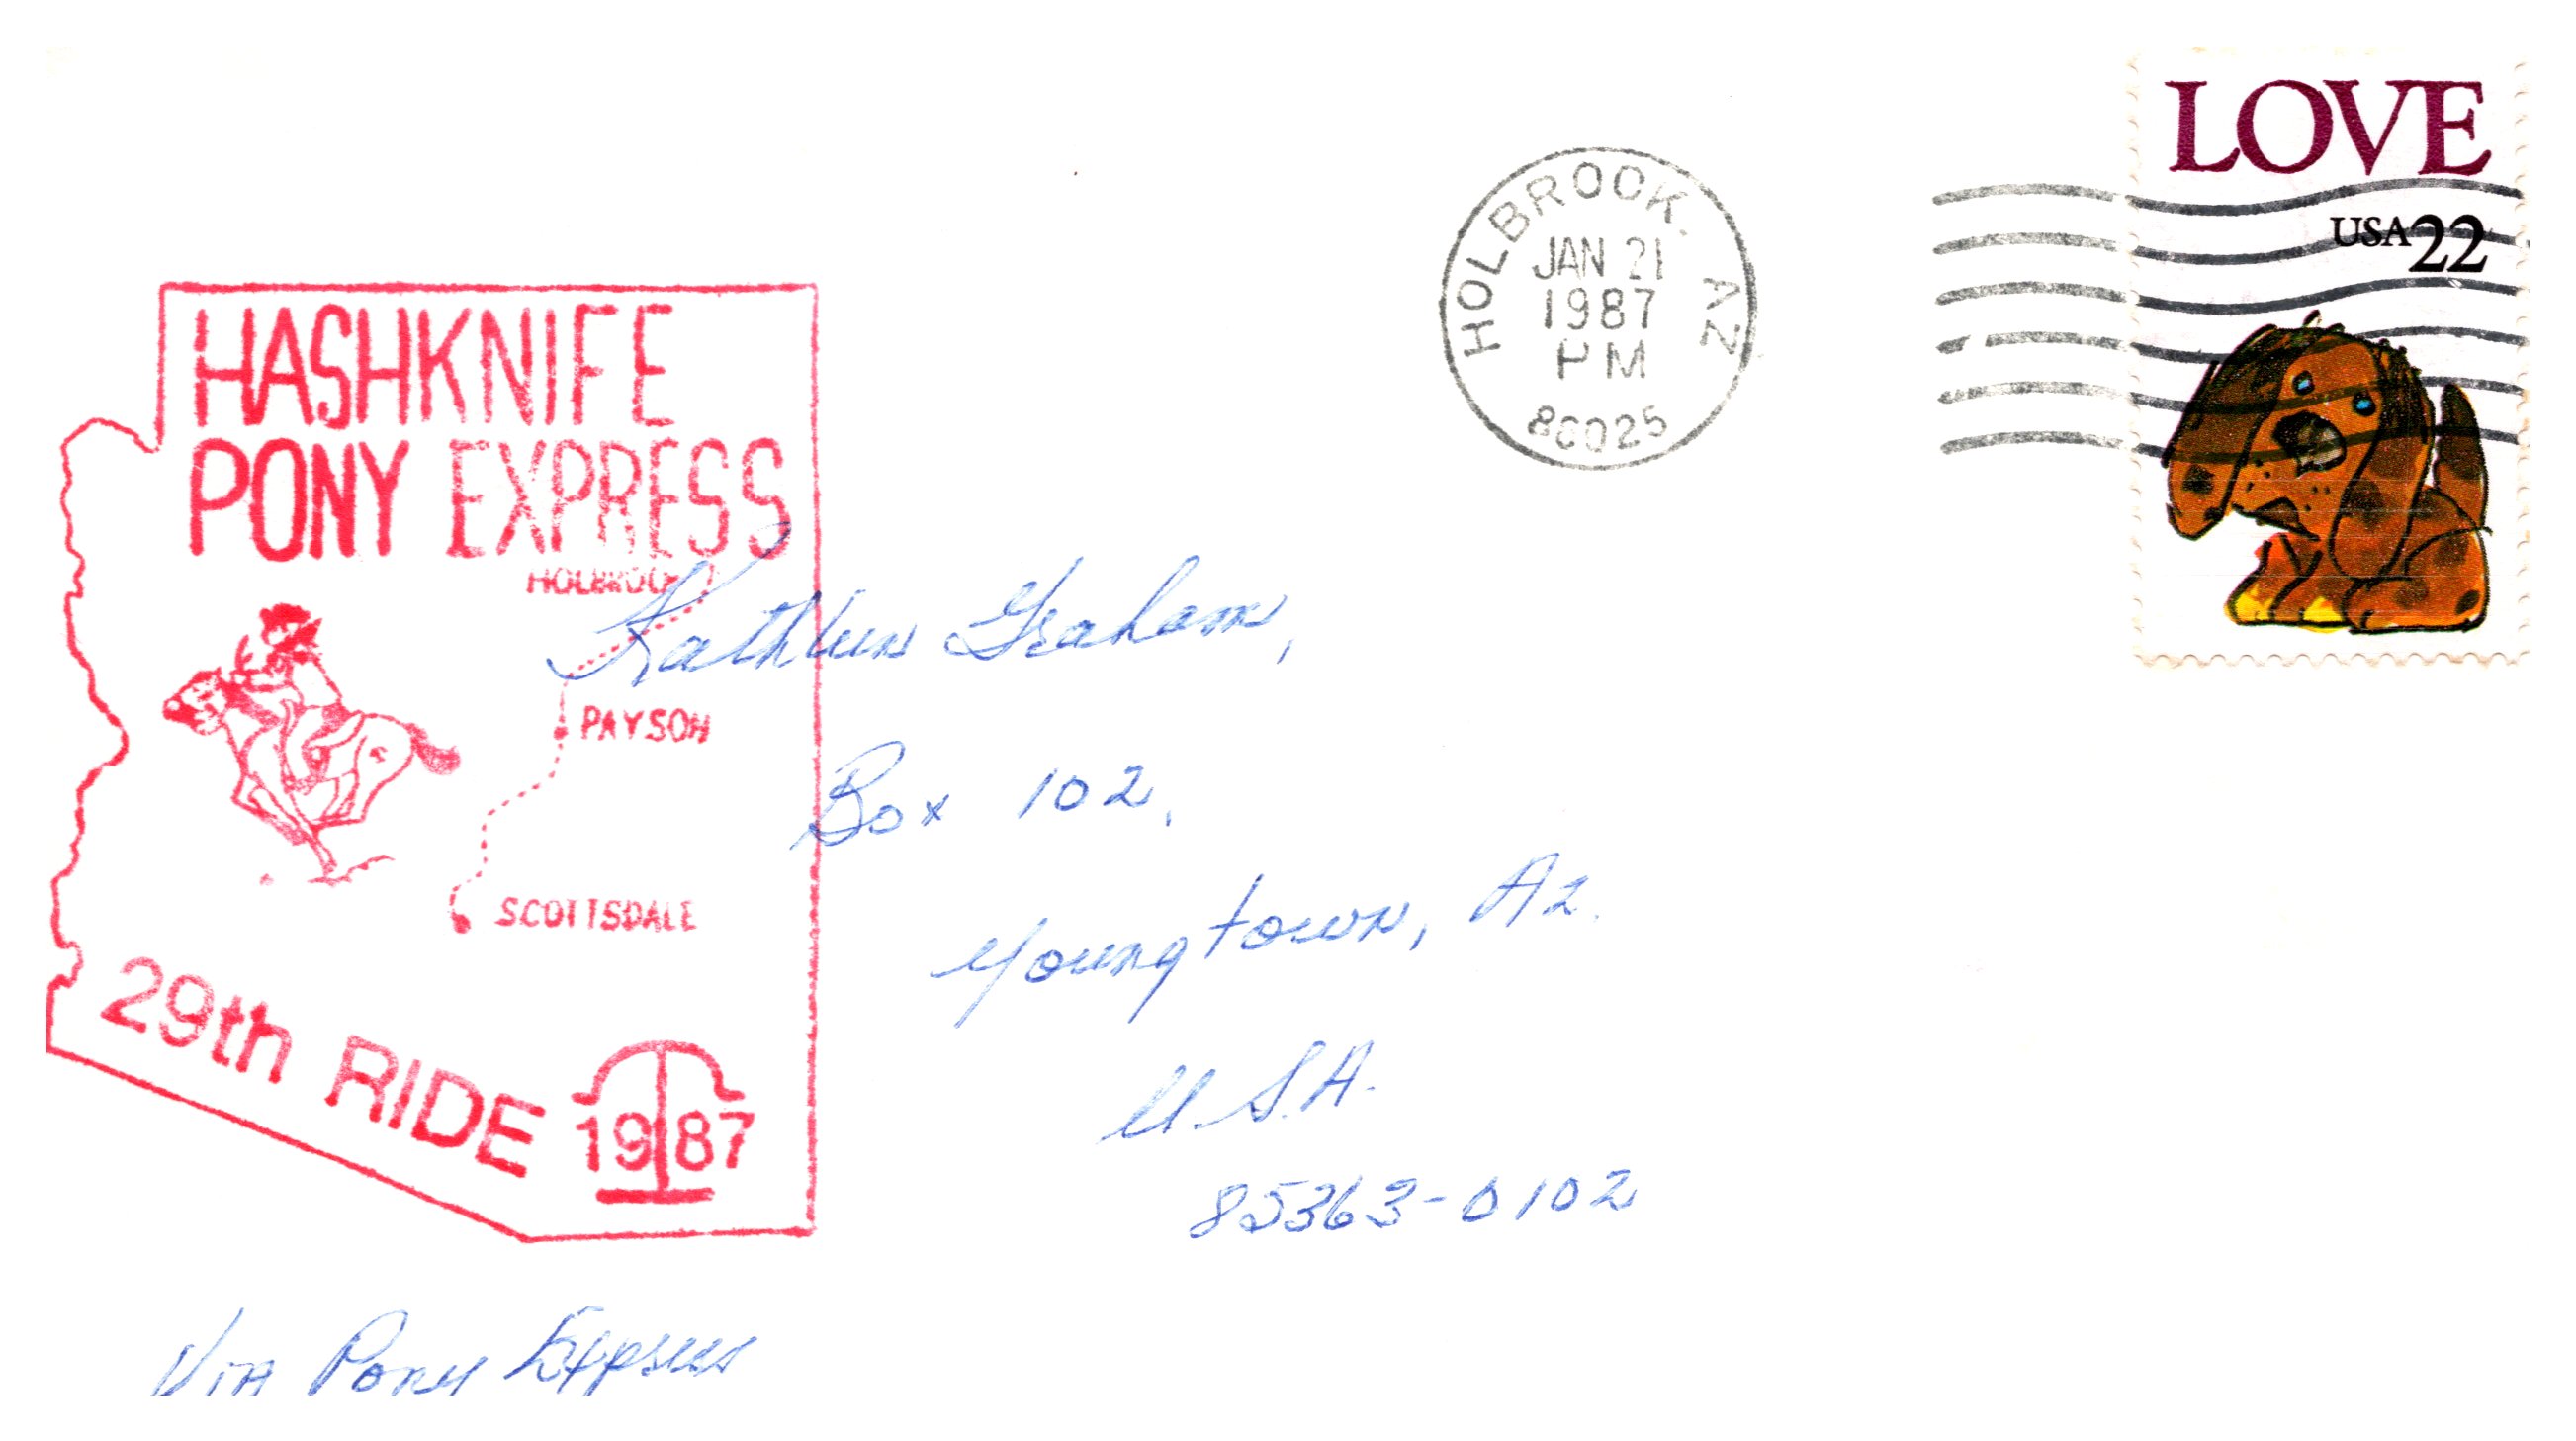 LOVE
USA22
HOLBROOK. AZ
JAN 21
1987
PM
86025
HASHKNIFE
PONY EXPRESS
HOLBROOK
PAYSON
SCOTTSDALE
29th RIDE
1987
Kathleen Graham,
Box 102,
Youngtown, Az.
U.S.A.
85363-0102
Via Pony Express